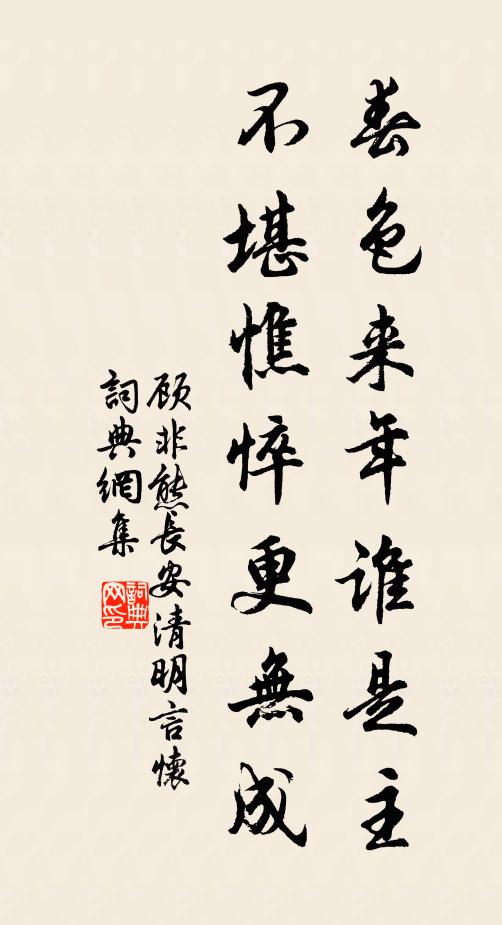 春色来年谁是主
不堪憔悴更無成
顾非熊長安清明言懷
詞典網集
詞典网印